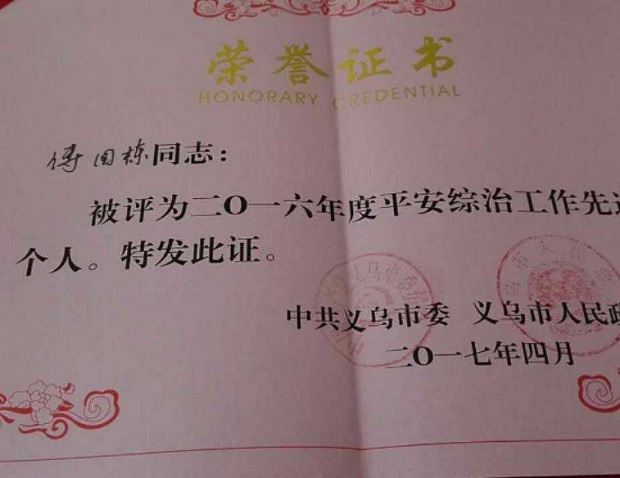 荣誉证书
HONORARY CREDENTIAL
傅国栋同志：
被评为二〇一六年度平安综治工作先进
个人。特发此证。
中共义乌市委 义乌市人民政
二〇一七年四月